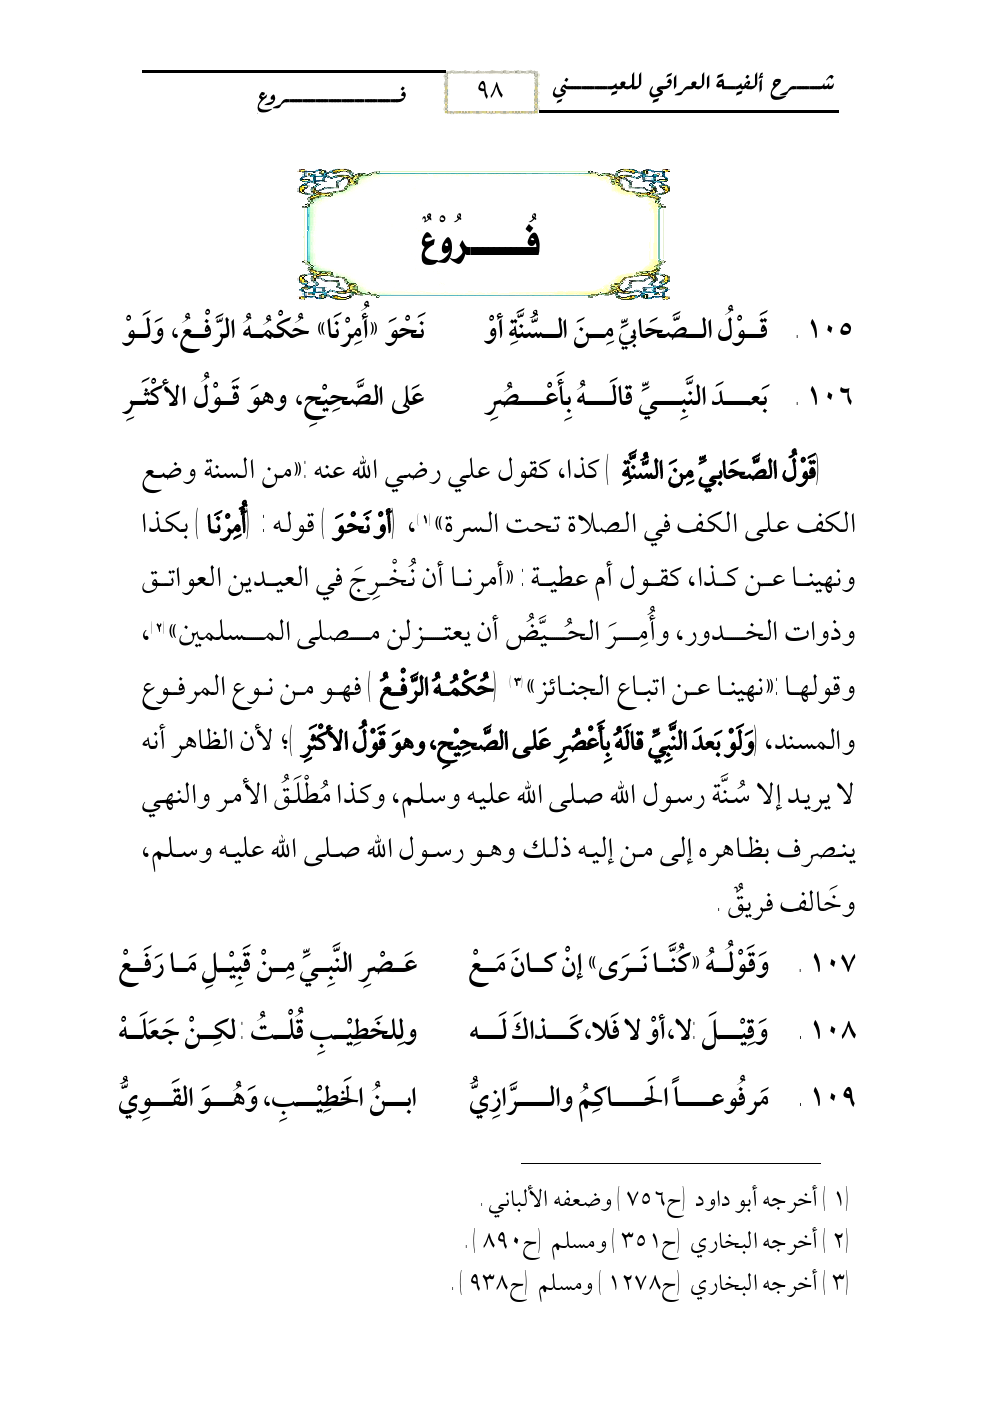 شـــرح ألفيـة العراقي للعيـــني
٩٨
فــــــــــــروع
فُـــــرُوْعٌ
١٠٥ . قَـوْلُ الـصَّحَابيِّ مِـنَ الـسُّنَّةِ أوْ نَحْوَ «أُمِرْنَا» حُكْمُـهُ الرَّفْـعُ، وَلَـوْ
١٠٦ . بَعـــدَ النَّبِـــيِّ قالَـــهُ بِأَعْـــصُرِ عَلى الصَّحِيْحِ، وهوَ قَـوْلُ الأكْثَـرِ
(قَوْلُ الصَّحَابيِّ مِنَ السُّنَّةِ) كذا، كقول علي رضي الله عنه: «من السنة وضع
الكف على الكف في الصلاة تحت السرة»(١)، (أوْ نَحْوَ) قوله: (أُمِرْنَا) بكذا
ونهينـا عـن كـذا، كقـول أم عطيـة: «أمرنـا أن نُخْـرِجَ في العيـدين العواتـق
وذوات الخـدور، وأُمِـرَ الحُـيَّضُ أن يعتـزلن مـصلى المـسلمين»(٢)،
وقولهـا: «نهينـا عـن اتبـاع الجنـائز»(٣) (حُكْمُـهُ الرَّفْـعُ) فهـو مـن نـوع المرفـوع
والمسند، (وَلَوْ بَعدَ النَّبِيِّ قالَهُ بِأَعْصُرِ عَلى الصَّحِيْحِ، وهوَ قَوْلُ الأكْثَرِ)؛ لأن الظاهر أنه
لا يريـد إلا سُـنَّة رسـول الله صـلى الله عليـه وسـلم، وكـذا مُطْلَـقُ الأمـر والنهي
ينـصرف بظـاهره إلى مـن إليـه ذلـك وهـو رسـول الله صـلى الله عليـه وسـلم،
وخَالف فريقٌ .
١٠٧ . وَقَوْلُـهُ «كُنَّـا نَـرَى» إنْ كـانَ مَـعْ عَـصْرِ النَّبِـيِّ مِـنْ قَبِيْـلِ مَـا رَفَـعْ
١٠٨ . وَقِيْـــلَ: لا، أوْ لا فَلا، كَـــذاكَ لَـــه ولِلخَطِيْـبِ قُلْـتُ: لكِـنْ جَعَلَـهْ
١٠٩ . مَرفُوعـــاً الحَـــاكِمُ والـــرَّازِيُّ ابـــنُ الخَطِيْـــبِ، وَهُـــوَ القَـــوِيُّ
(١) أخرجه أبو داود (ح٧٥٦) وضعفه الألباني .
(٢) أخرجه البخاري (ح٣٥١) ومسلم (ح٨٩٠).
(٣) أخرجه البخاري (ح١٢٧٨) ومسلم (ح٩٣٨).